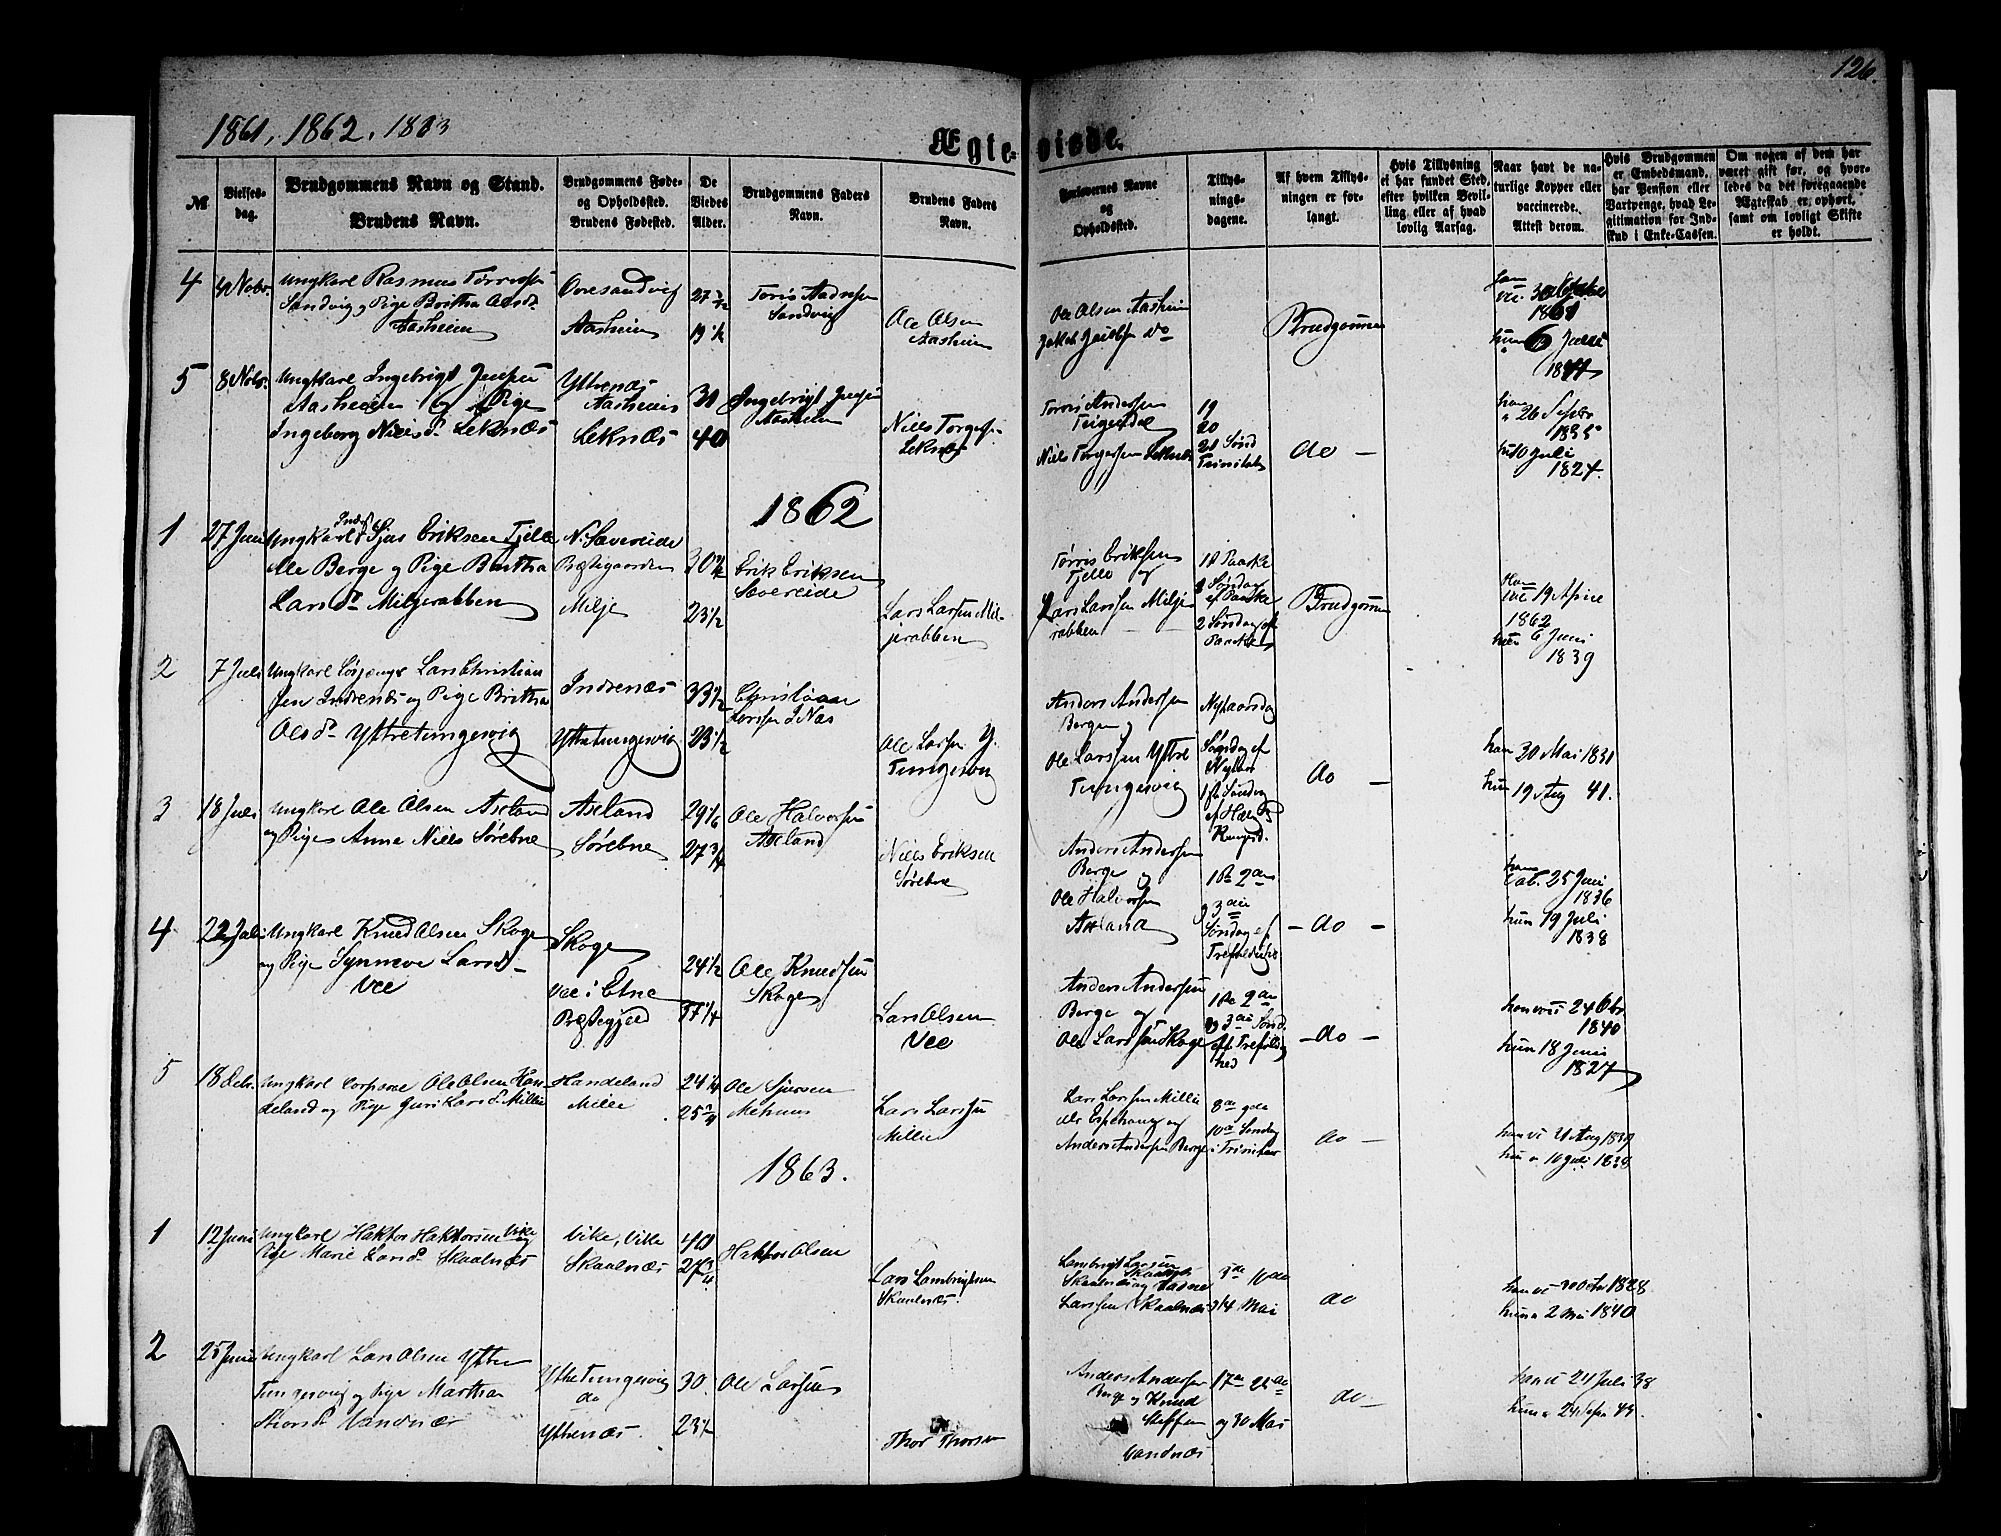 126.
1861, 1862, 1863
Ægte-viede.
№
Vielses-dag.
Brudgommens Navn og Stand.
Brudens Navn.
Brudgommens Føde-
og Opholdssted.
Brudens Fødested.
De
Viedes
Alder.
Brudgommens Faders
Navn.
Brudens Faders
Navn.
Forlovernes Navne
og
Opholdssted.
Tillys-
nings-
dagene.
Af hvem Tillys-
ningen er for-
langt.
Hvis Tillysning
ei har fundet Sted,
efter hvilken Bevil-
ling eller af hvad
lovlig Aarsag.
Naar havt de na-
turlige Kopper eller
vaccinerede.
Attest derom.
Hvis Brudgommen
er Embedsmand,
har Pension eller
Vartpenge, hvad Le-
gitimation for Ind-
skud i Enke-Cassen.
Om nogen af dem har
været gift før, og hvor-
ledes da det foregaaende
Ægteskab er ophørt,
samt om lovligt Skifte
er holdt.
4
4 Novbr.
Ungkarl Rasmus Tørressen
Sandvig og Pige Brittha Olsd.
Aasheim
Ovresandvig
Aasheim
27
19 1/2
Sandvig
Ole Olsen
Aasheim
Ole Olsen Aasheim
Jakob Jacobsen do
Brudgommen
1861
hun 6 Juli
5
8 Novbr.
Ungkarl Ingebrigt Jensen
Aasheim og Pige
Ingeborg Nielsd. Leknæs
Ytrenæs
Aasheim
Leknæs
31
40
Ingebrigt Jensen
Aasheim
Niels Torgersen
Leknæs
Torris Andersen
Teigerdal
Niels Torgersen Leknæs
19
20
21 Sønd
Trinitatis
do —
26 Septbr
1835
hun 10 Juli
1827.
1862
1
27 Juni
Ungkarl Sjur Eriksen Fjelle
Ole Berge og Pige Brittha
Larsd. Miljerabben
N. Sævereide
Præstegaarden
Milje
30
23 1/2
Erik Eriksen
Sævereide
Lars Larsen Mil-
jerabben
Tørris Eriksen
Fjelle og
Lars Larsen Milje
rabben
1st Paaske
Søndag
ef Paaske
2 Søndag ef
Paaske
Brudgommen
Han
vac 19 April
1862
hun 6 Juni
1839
2
7 Juli
Ungkarl Lars Christian
sen Indrenæs og Pige Brittha
Olsd. Ytretungesvig
Indrenæs
Yttretungesvig
33 1/2
23 1/2
Christian
Larssen I Næs
Ole Larsen Y.
Tungesvig
Anders Andersen
Berge og
Ole Larssen Yttre
Tungesvig
Nytaarsdag
Søndag ef
Nytaar
1ste Søndag
do —
han 30 Mai 1831
hun 19 Aug 41.
3
18 Juli
Ungkarl Ole Olsen Axland
og Pige Anna Niels Sørebne
Axland
Sørebne
29 1/6
27 3/4
Ole Halvorsen
Axland
Niels Eriksen
Sørebne
Anders Andersen
Berge og
Ole Halvorsen
Axland
1ste 2den
og 3die
Søndag ef
Trefoldighed
— do —
25 Juni
1836
hun 19 Juli
1838
4
22 Juli
Ungkarl Knud Olsen Skoge
og Pige Synneve Larsd.
Vee
Skoge
Vee i Etne
Præstegjeld
24 1/2
Ole Knudsen
Skoge
Lars Olsen
Vee
Anders Andersen
Berge og
Ole Larssen Skoge
1ste 2den
og 3die Sønd.
eft Trefoldig
hed
— do —
han vac 24 Obr
1840
hun 18 Juni
1827
5
18 Debr.
Ungkarl Ole Olsen Han-
deland og Pige Guri Larsd. Millie
Handeland
Millie
24 1/4
25
Ole Sjursen
Lars Larsen
Millie
Lars Larsen Millie
Anders Andersen Berge
8de 9de
10de Søndag
i Trinitat
do —
han vc 4 Aug 1839
hun 10 Juli 1838
1863.
1
12 Juni
Ungkarl Haktor Haktorsen Vike og
Pige Marie Larsd. Skaalnæs
Vike, Vike
Skaalnæs
40
27 3/4
Haktor Olsen
Lars Lambrigtsen
Skaalnæs.
Lambrigt Larsen
Larssen Skaalnæs
og 14 Mai
do
1828
hun 2 Mai 1840
2
25 Juni
Ungkarl Lars Olsen Yttre
Tungesvig og Pige Martha
Thorsd. Vandnæs
Yttre Tungesvig
do
Yttrenæs.
30.
Ole Larsen
Thor Thorsen
Anders Andersen
Berge og Knud
Steffen
Vandnæs
17de
og 30 Mai
do —
han vc 24 Juli 38